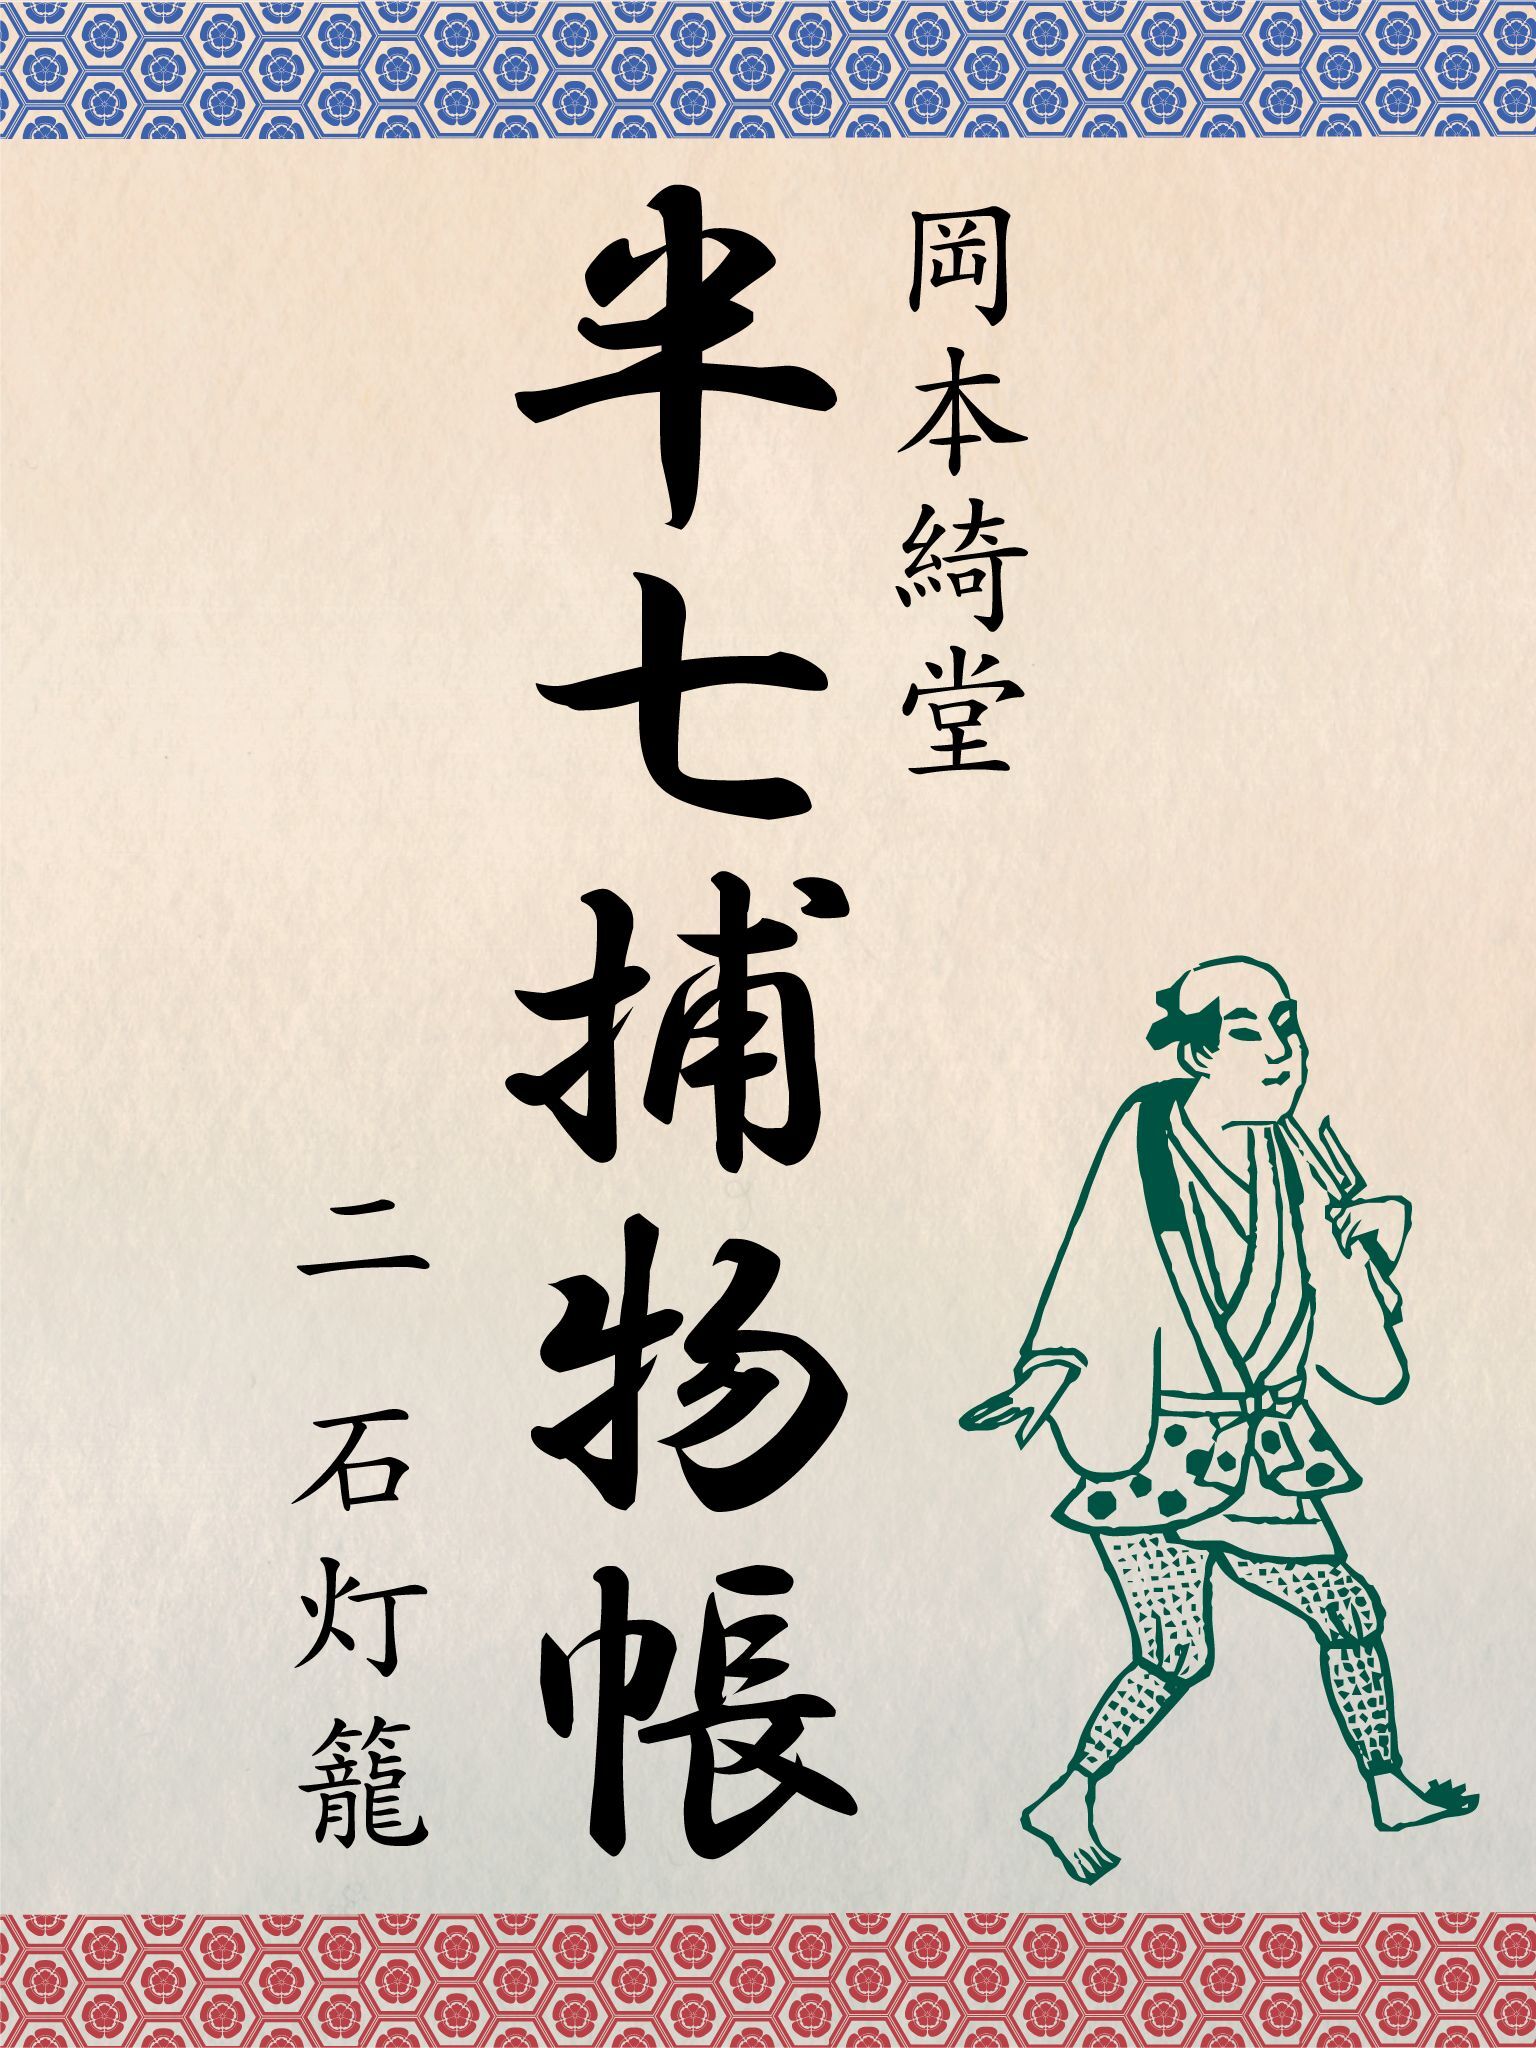 岡本綺堂
半七捕物帳
二 石灯籠